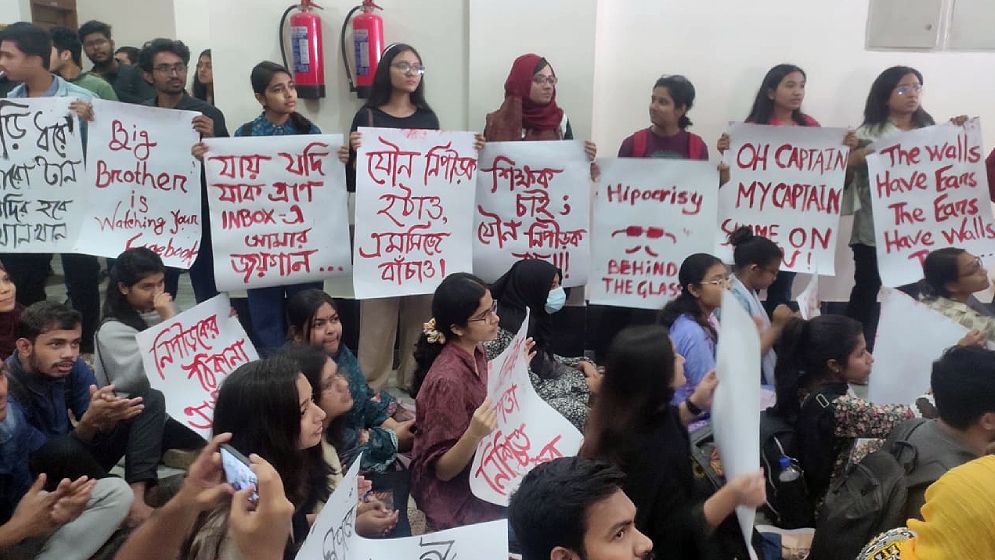 ধরে
টান
হবে
খান খান
Big
Brother
is
Watching Your
Facebook
যায় যদি
যাক প্রাণ
INBOX-এ
আমার
জয়গান...
যৌন নিপীড়ক
হটাও,
এমসিজে
বাঁচাও!
শিক্ষক
চাই;
যৌন নিপীড়ক
Hipocrisy
BEHIND
THE GLASS
OH CAPTAIN
MY CAPTAIN
SHAME ON
The Walls
Have Ears
The Ears
Have Walls
নিপীড়কের
ঠিকানা
নিশ্চিত